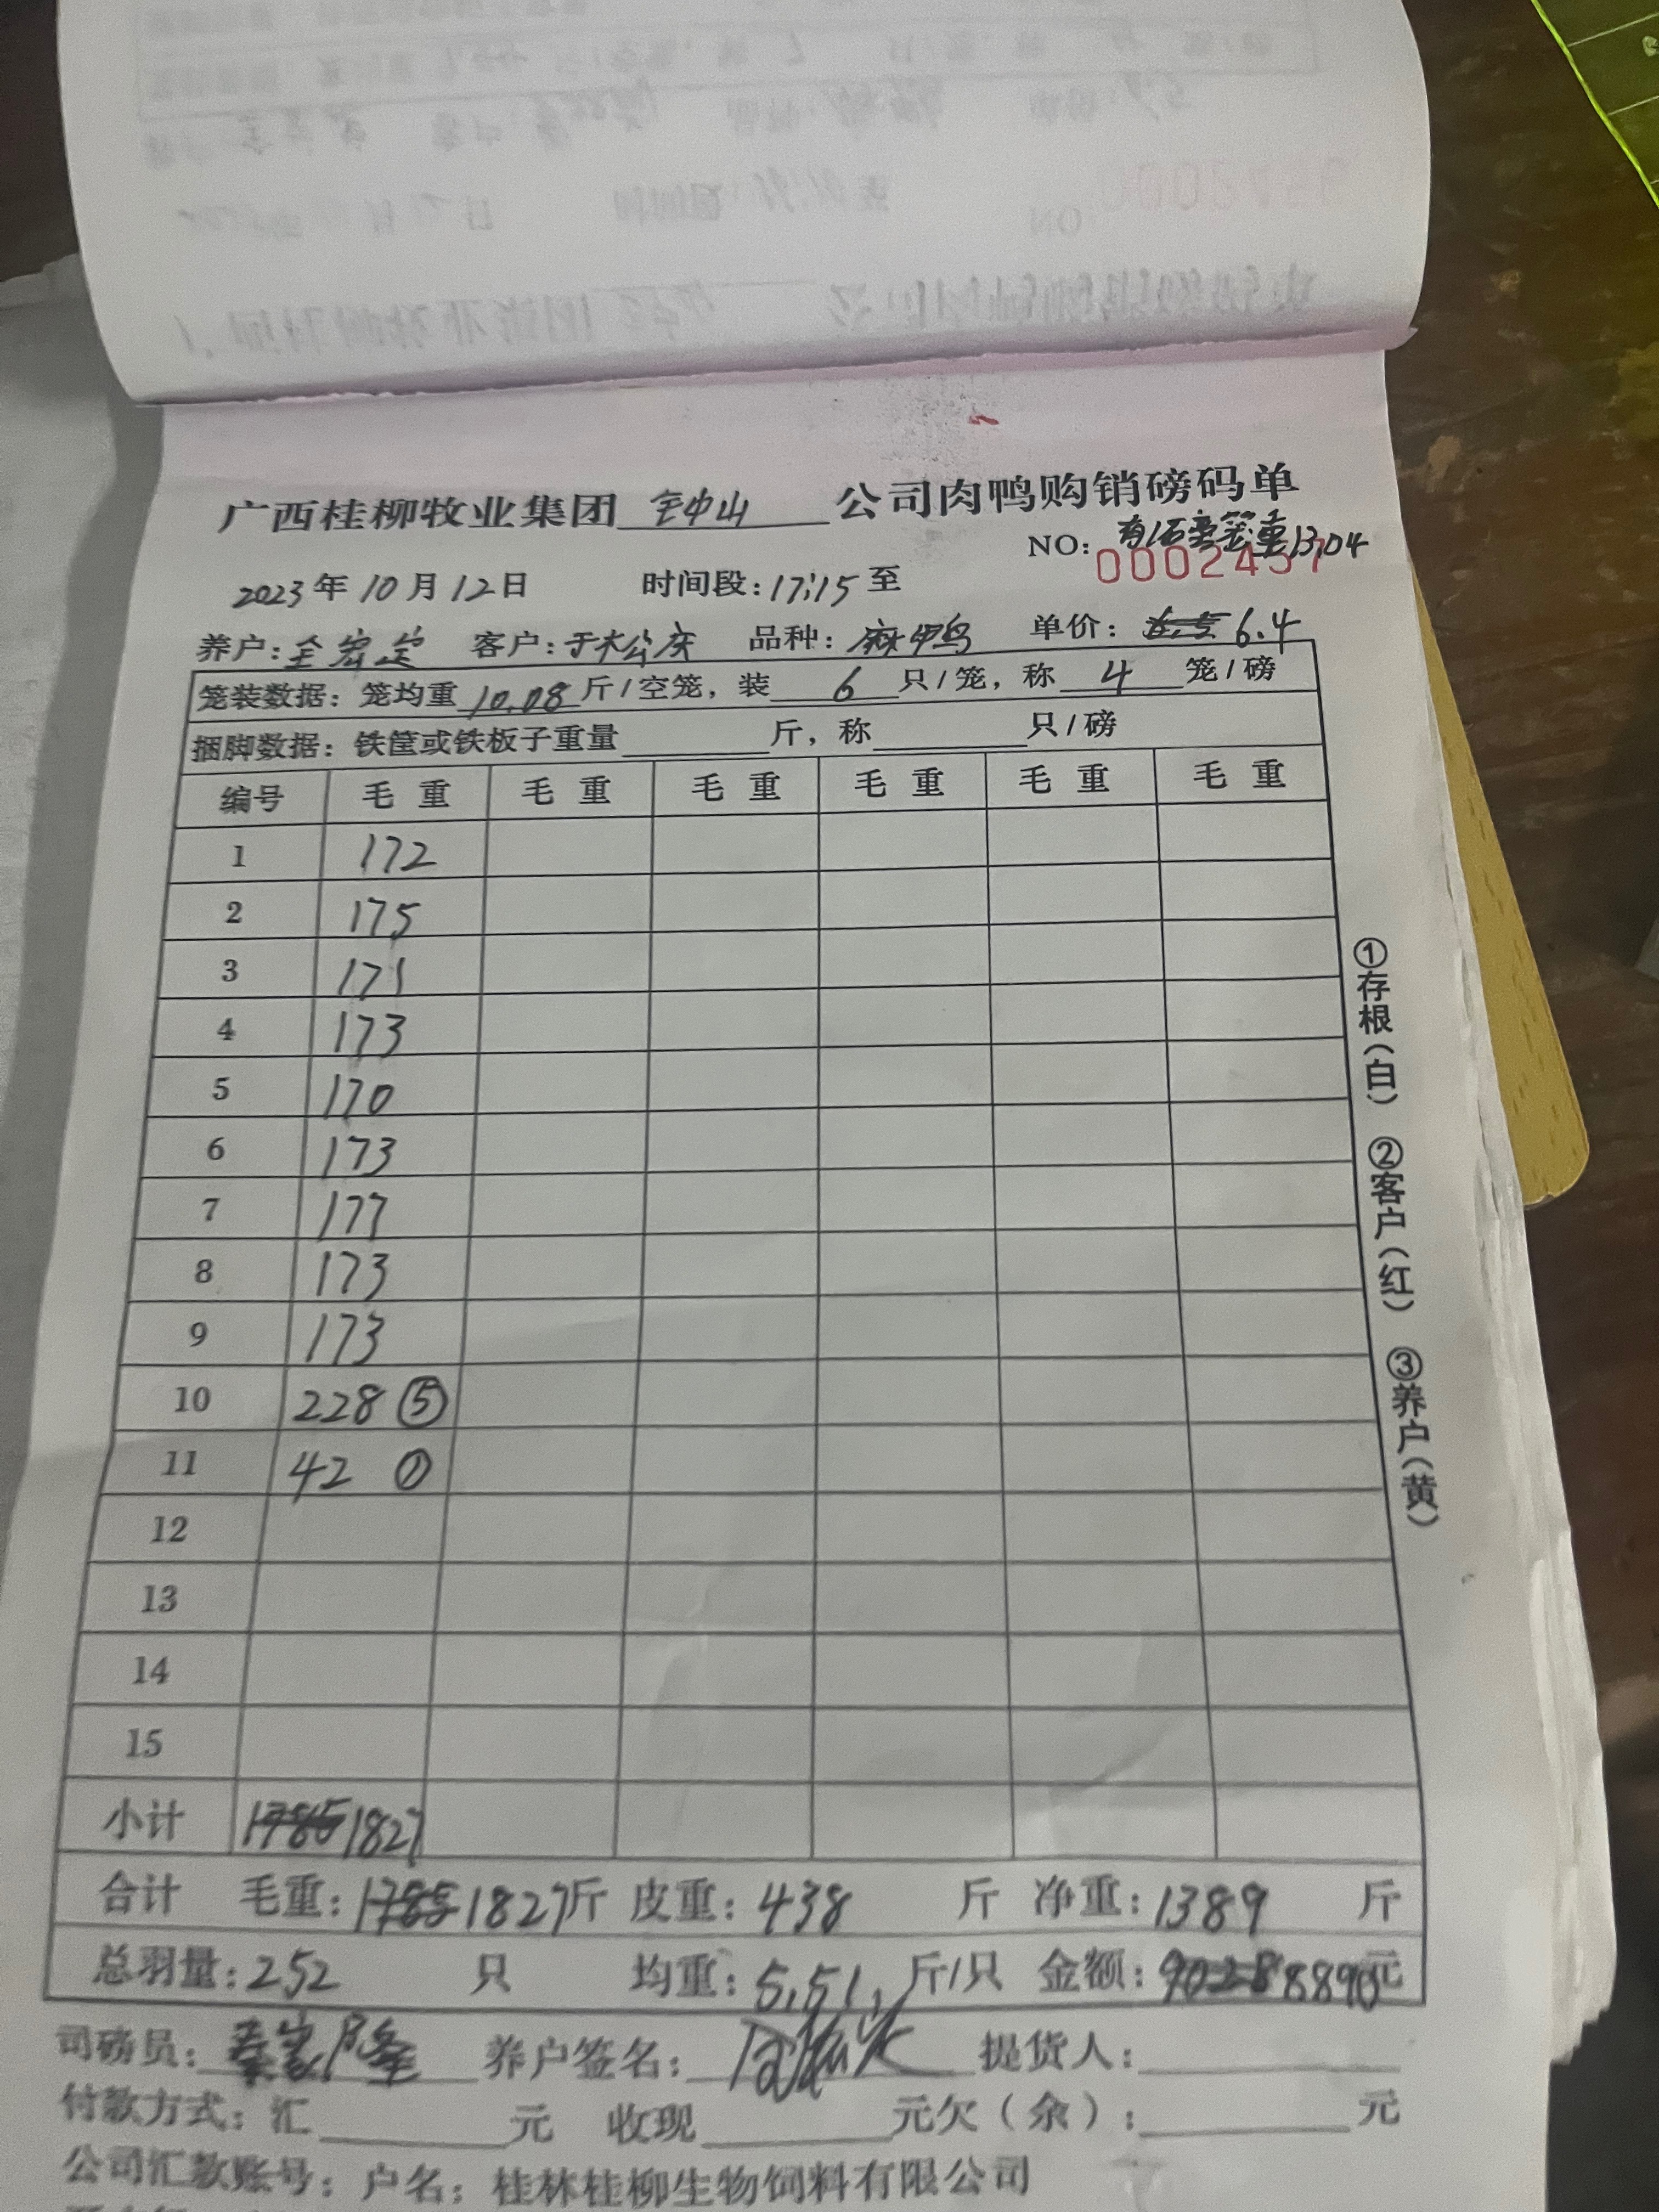 广西桂柳牧业集团 钟山 公司肉鸭购销磅码单
NO: 有1百壳笼重13.04
0002457
2023年10月12日 时间段:17:15至
养户:全宏定 客户:于木公庆 品种:麻甲鸟 单价: 6.4
笼装数据:笼均重10.08斤/空笼,装6只/笼,称4笼/磅
捆脚数据:铁筐或铁板子重量 斤,称 只/磅
编号 毛重 毛重 毛重 毛重 毛重 毛重
1 172
2 175
3 171
4 173
5 170
6 173
7 177
8 173
9 173
10 228 ⑤
11 42 ①
12
13
14
15
小计 1785 1827
合计 毛重:1785 1827斤 皮重:438 斤 净重:1389 斤
总羽量:252 只 均重:5.51斤/只 金额:9028 8890元
司磅员: 养户签名: 提货人:
付款方式:汇 元 收现 元欠(余): 元
公司汇款账号:户名:桂林桂柳生物饲料有限公司
①存根(白) ②客户(红) ③养户(黄)